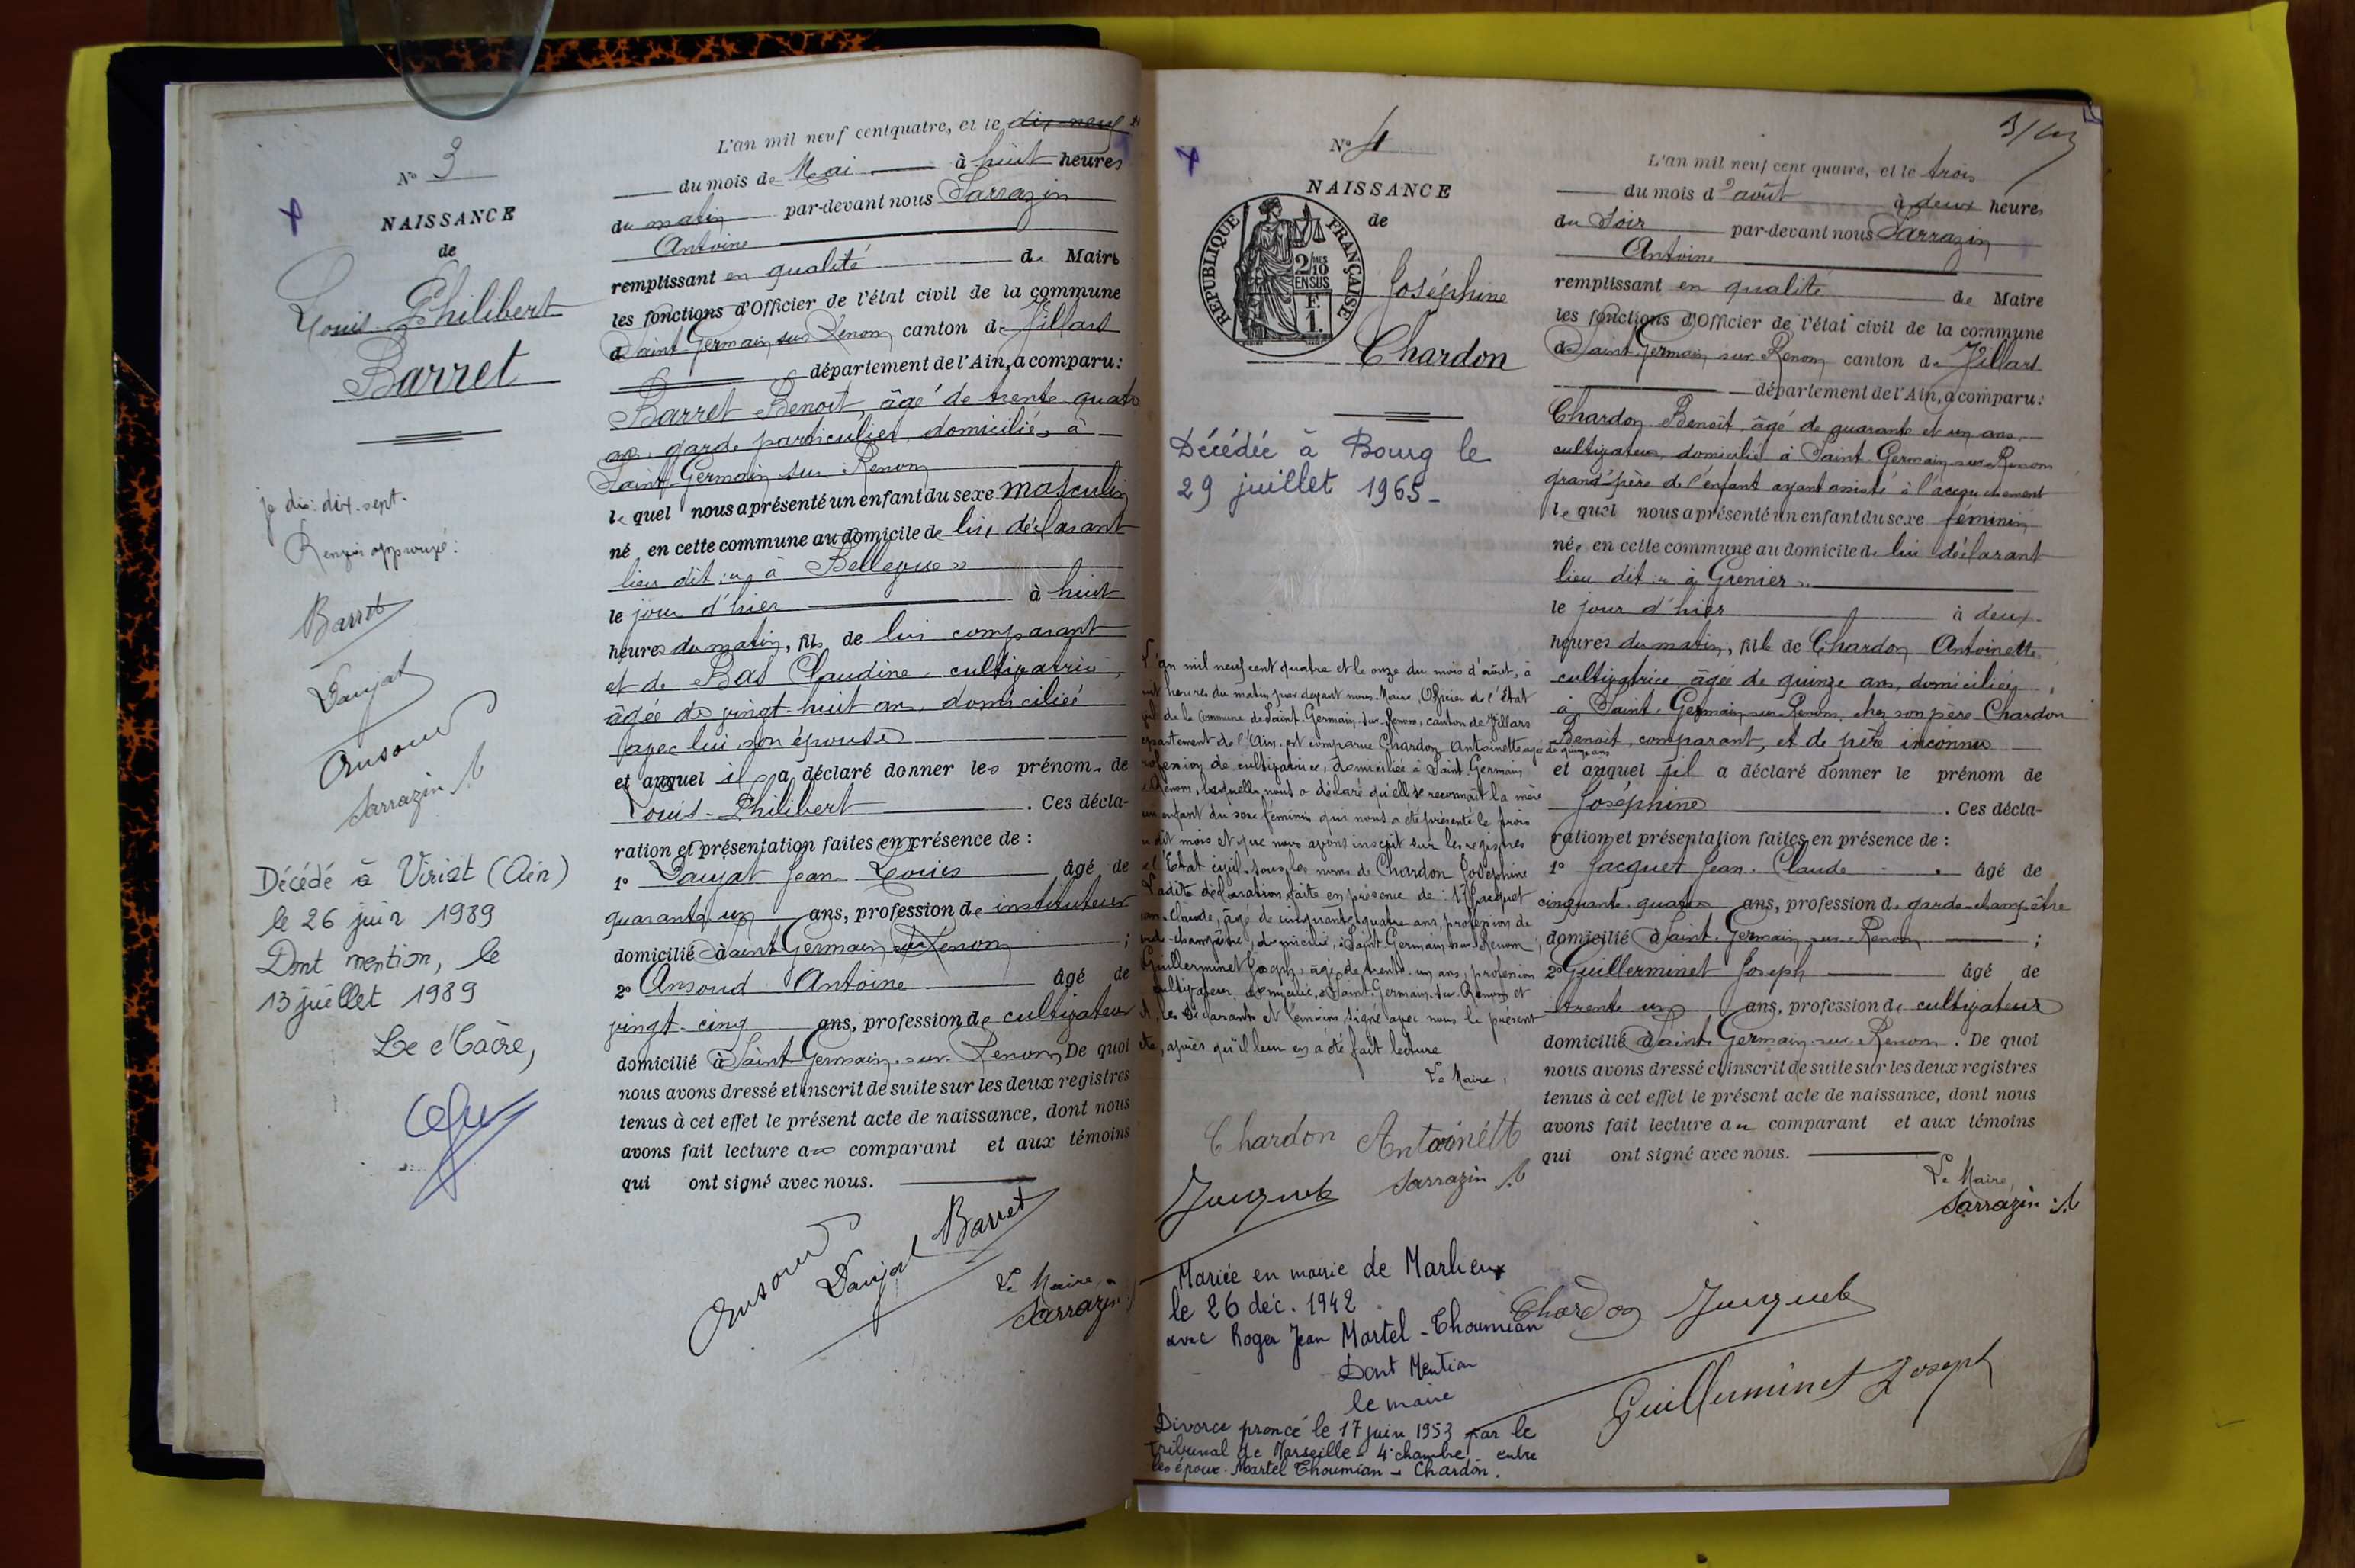 Nº 3
NAISSANCE
de
Louis-Philibert
Barret
je dis: dix-sept.
Renvoi approuvé:
Barret
Daujat
Ansoud
Sarrazin A
Décédé à Viriat (Ain)
le 26 juin 1989
Dont mention, le
13 juillet 1989
Le Maire,
L'an mil neuf cent quatre, et le dix-neuf
du mois de Mai à huit heures
du matin par-devant nous Sarrazin
Antoine
remplissant en qualité de Maire
les fonctions d'Officier de l'état civil de la commune
de Saint-Germain sur Renon canton de Villars
département de l'Ain, a comparu:
Barret Benoit, âgé de trente quatre
ans, garde particulier domicilié, à
Saint-Germain sur Renon
lequel nous a présenté un enfant du sexe masculin
né en cette commune au domicile de lui déclarant
lieu dit: « à Bellevue »
le jour d'hier à huit
heures du matin, fils de lui comparant
et de Bas Claudine, cultivatrice,
âgée de vingt-huit an, domiciliée
avec lui, son épouse
et auquel il a déclaré donner les prénoms de
Louis-Philibert . Ces décla-
ration et présentation faites en présence de :
1º Daujat Jean-Louis âgé de
quarante un ans, profession de instituteur
domicilié à Saint Germain sur Renon ;
2º Ansoud Antoine âgé de
vingt-cinq ans, profession de cultivateur
domicilié à Saint-Germain-sur-Renon De quoi
nous avons dressé et inscrit de suite sur les deux registres
tenus à cet effet le présent acte de naissance, dont nous
avons fait lecture au comparant et aux témoins
qui ont signé avec nous.
Ansoud Daujat Barret
Le Maire,
Sarrazin
Nº 4
NAISSANCE
de
REPUBLIQUE FRANÇAISE
2/10 MES
EN SUS
F.
1.
Joséphine
Chardon
Décédée à Bourg le
29 juillet 1965-
L'an mil neuf cent quatre et le onze du mois d'août, à
huit heures du matin par devant nous Maire Officier de l'État
civil de la Commune de Saint-Germain-sur-Renon, canton de Villars
département de l'Ain, est comparue Chardon Antoinette agée de quinze ans
profession de cultivatrice, domiciliée à Saint-Germain
s. Renon, laquelle nous a déclaré qu'elle se reconnaît la mère
un enfant du sexe féminin qui nous a été présenté le trois
du dit mois et que nous avons inscrit sur les registres
de l'État civil sous les noms de Chardon Joséphine
Ladite déclaration faite en présence de: 1º Jacquet
Jean-Claude, âgé de cinquante-quatre ans, profession de
garde-champêtre, domicilié à Saint Germain sur Renon;
Guillerminet Joseph, âgé de trente-un ans, profession
cultivateur domicilié, à Saint-Germain-sur-Renon et
et, les déclarants et témoins signé avec nous le présent
acte, après qu'il leur en a été fait lecture
Le Maire,
Chardon Antoinétt
Jacquet Sarrazin A
Mariée en mairie de Marlieux
le 26 déc. 1942
avec Roger Jean Martel-Thoumian
Dont Mention
le maire
Divorce proncé le 17 juin 1953 par le
Tribunal de Marseille - 4e chambre, entre
les époux. Martel Thoumian - Chardon.
L'an mil neuf cent quatre, et le trois
du mois d'août à deux heures
du Soir par-devant nous Sarrazin
Antoine
remplissant en qualité de Maire
les fonctions d'Officier de l'état civil de la commune
de Saint-Germain sur Renon canton de Villars
département de l'Ain, a comparu:
Chardon Benoit, âgé de quarante et un ans,
cultivateur, domicilié à Saint-Germain-sur-Renon
grand-père de l'enfant ayant assisté à l'accouchement
lequel nous a présenté un enfant du sexe féminin
née en cette commune au domicile de lui déclarant
lieu dit « à Grenier ».
le jour d'hier à deux
heures du matin, fille de Chardon Antoinette
cultivatrice âgée de quinze ans, domiciliée
à Saint-Germain-sur-Renon, chez son père Chardon
Benoit, comparant, et de père inconnu
et auquel il a déclaré donner le prénom de
Joséphine . Ces décla-
ration et présentation faites en présence de :
1º Jacquet Jean-Claude âgé de
cinquante-quatre ans, profession de garde-champêtre
domicilié à Saint-Germain-sur-Renon ;
2º Guillerminet Joseph âgé de
trente un ans, profession de cultivateur
domicilié à Saint-Germain-sur-Renon. De quoi
nous avons dressé et inscrit de suite sur les deux registres
tenus à cet effet le présent acte de naissance, dont nous
avons fait lecture au comparant et aux témoins
qui ont signé avec nous.
Le Maire,
Sarrazin A
Chardon Jacquet
Guillerminet Joseph